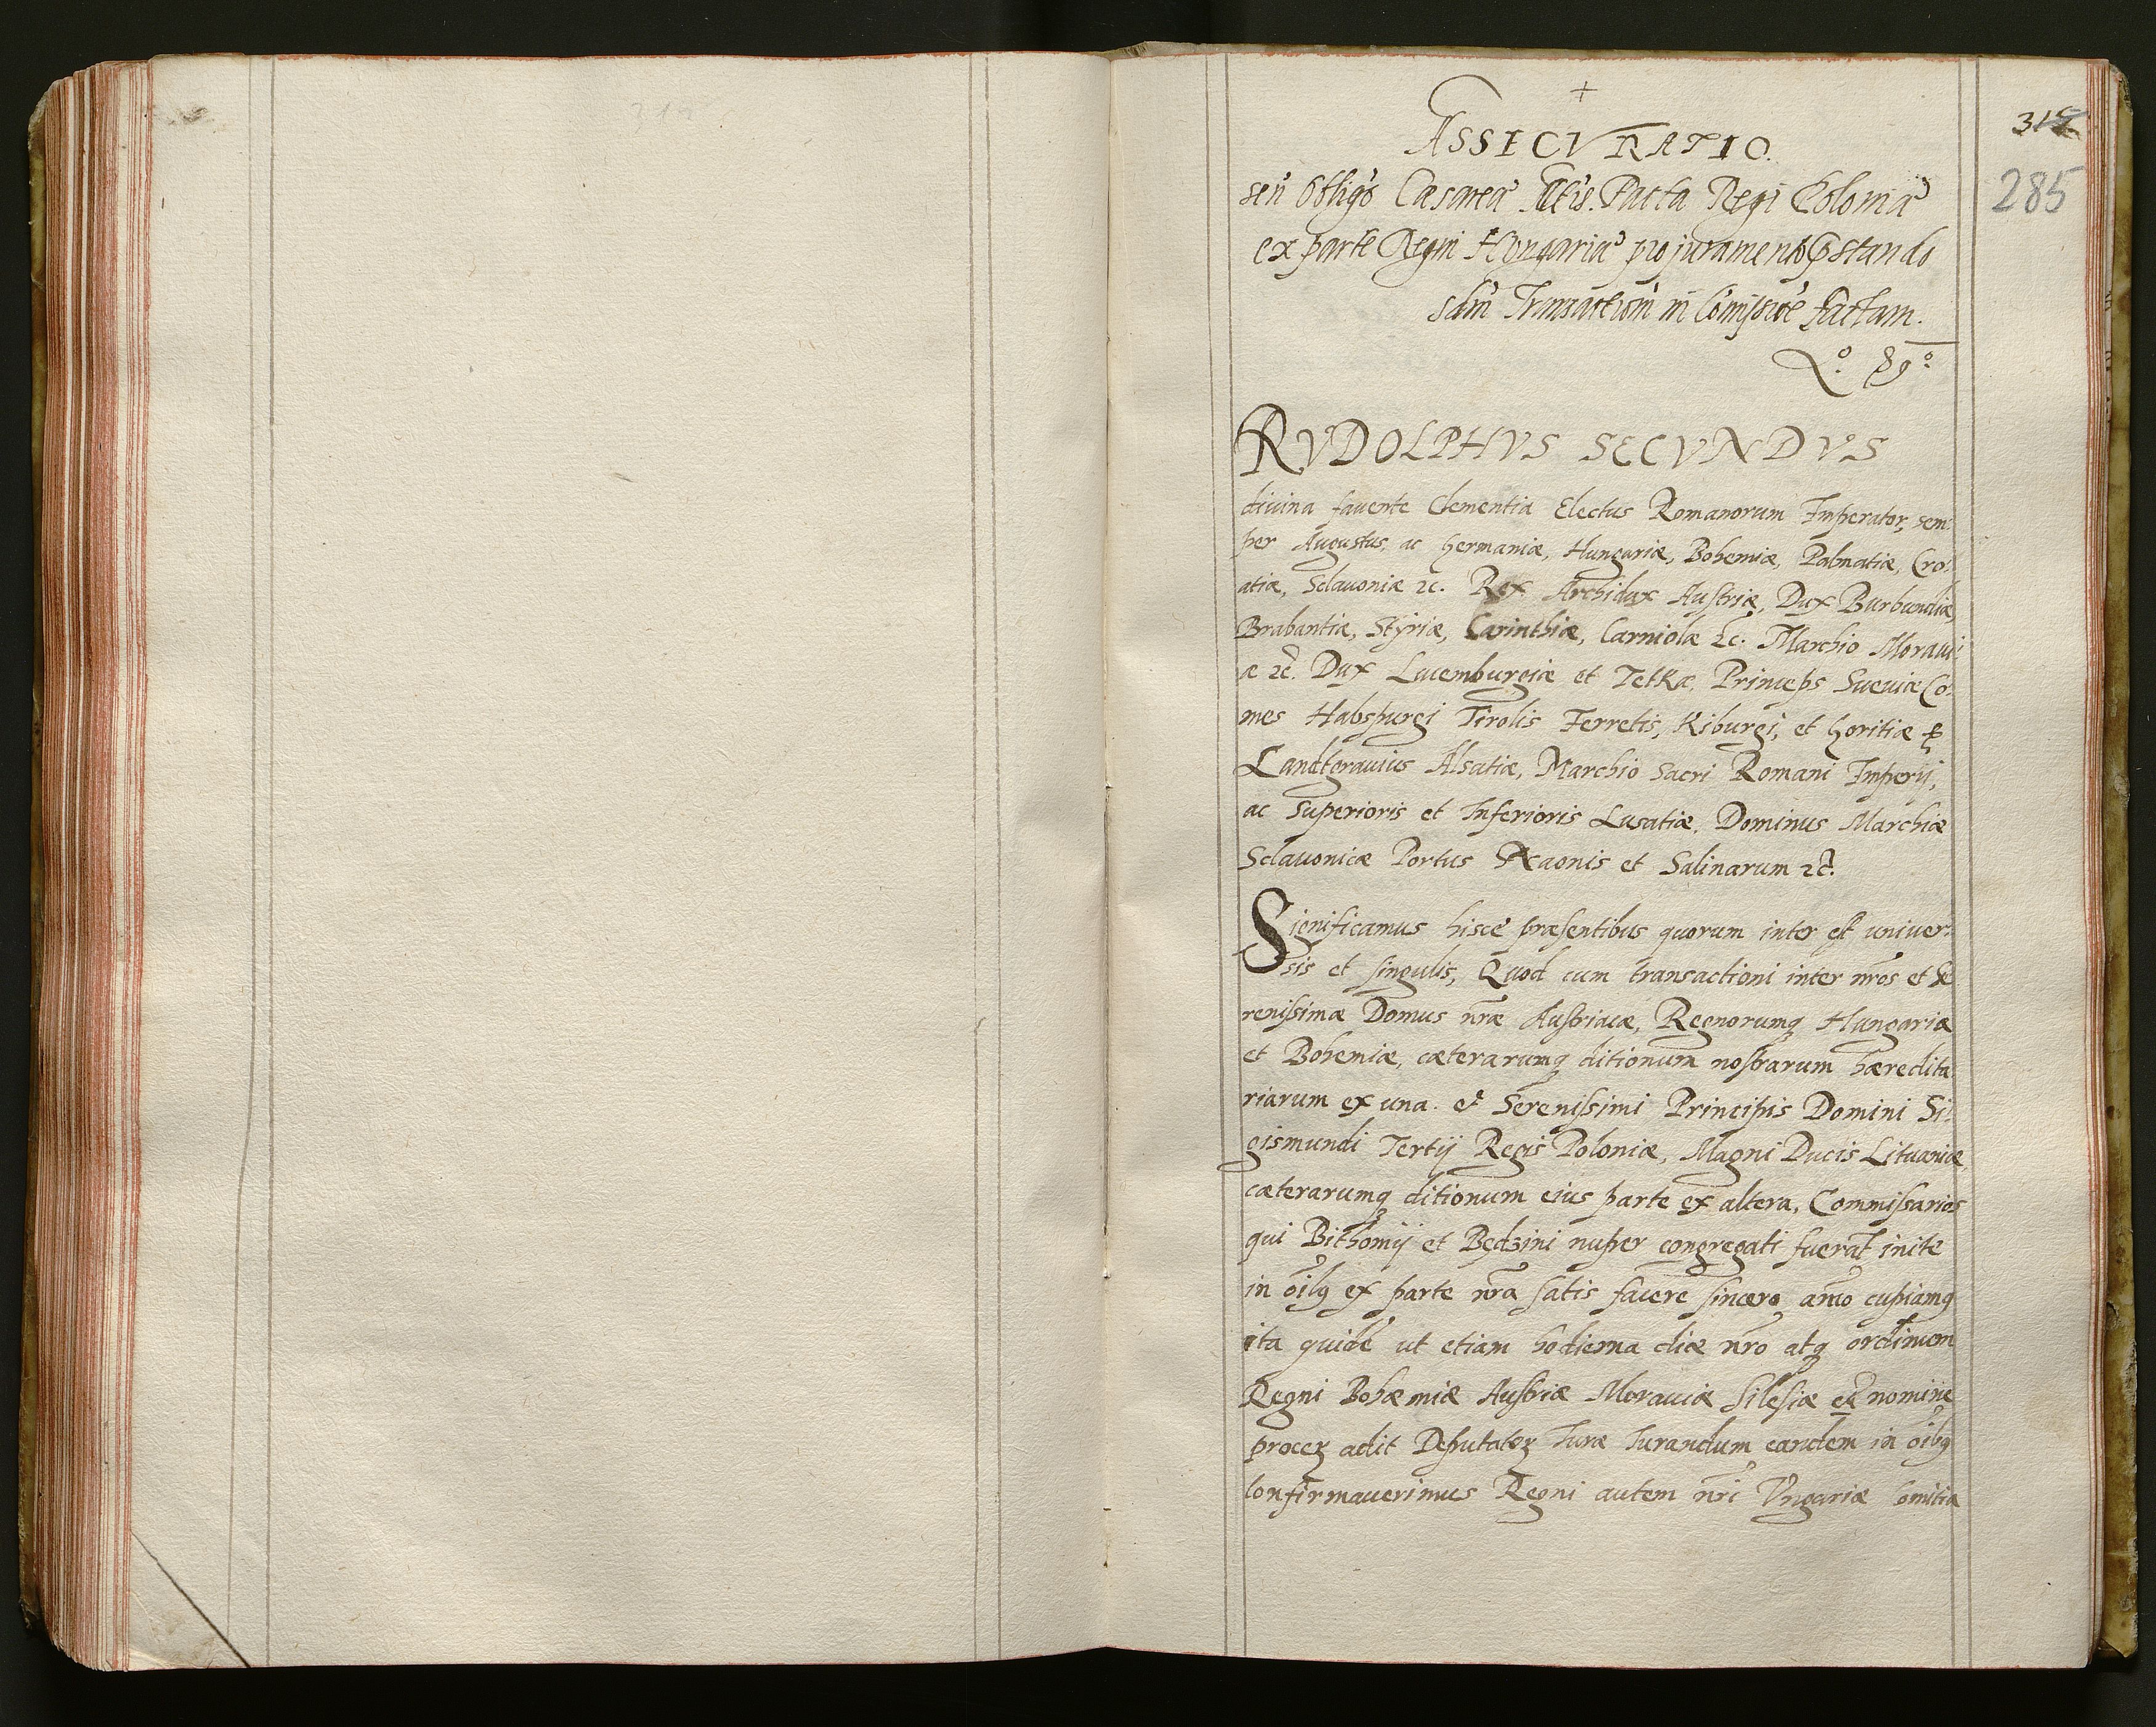 +
ASSICVRATIO.
315
seu Obligõ Cæsareæ Mtis. Facta Regi Poloniæ
285
ex parte Regni Hungariæ pro juramento pstando
scdm Transactiom in Comissoe factam.
Lº. 89º.
RVDOLPHVS SECVNDVS
divina favente Clementia Electus Romanorum Imperator, sem-
per Augustus, ac Germaniæ, Hungariæ, Bohemiæ, Dalmatiæ, Cro-
atiæ, Sclavoniæ 2c. Rex Archidux Austriæ, Dux Burbundiæ
Brabantiæ, Styriæ, Carinthiæ, Carniolæ 2c. Marchio Moravi-
æ 2c. Dux Lucemburgiæ et Tetkæ. Princeps Sueviæ Co-
mes Habspurgi Tirolis Ferretis, Kiburgi, et Goritiæ
Landtgravius Alsatiæ, Marchio Sacri Romani Imperij,
ac Superioris et Inferioris Lusatiæ. Dominus Marchiæ
Sclavonicæ Portus Naonis et Salinarum 2c.
Significamus hisce præsentibus quorum inter est univer-
sis et singulis, Quod cum transactioni inter nros et Se
renissimæ Domus nræ Austriacæ, Regnorumq Hungariæ
et Bohemiæ, cæterarumq ditionum nostrarum hæredita-
riarum ex una. et Serenissimi Principis Domini Si-
gismundi Tertij Regis Poloniæ, Magni Ducis Lituaniæ,
cæterarumq ditionum eius parte ex altera, Commissarios
qui Bithomij et Będzini nuper congregati fuerāt inite
in oibq ex parte nra satis facere sincero animo cupiamq
ita quidē ut etiam hodierna die nro atq ordinum
Regni Bohæmiæ Austriæ Moraviæ Silesiæ et nomine
procez adit Deputatoz Iuræ Iurandum eandem in oibq
Confirmaverimus Regni autem nri Vngariæ Comitia